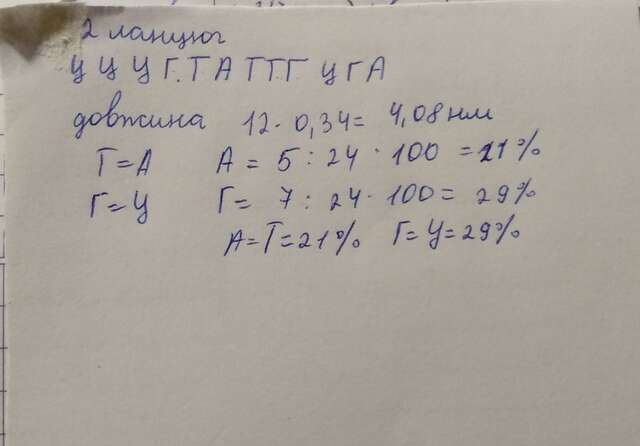 2 ланцюг
Ц Ц Ц Г. Т А Т Т. Г Ц Г А
довжина 12 · 0,34 = 4,08 нм
Т = А А = 5 : 24 · 100 = 21%
Г = Ц Г = 7 : 24 · 100 = 29%
А = Т = 21% Г = Ц = 29%